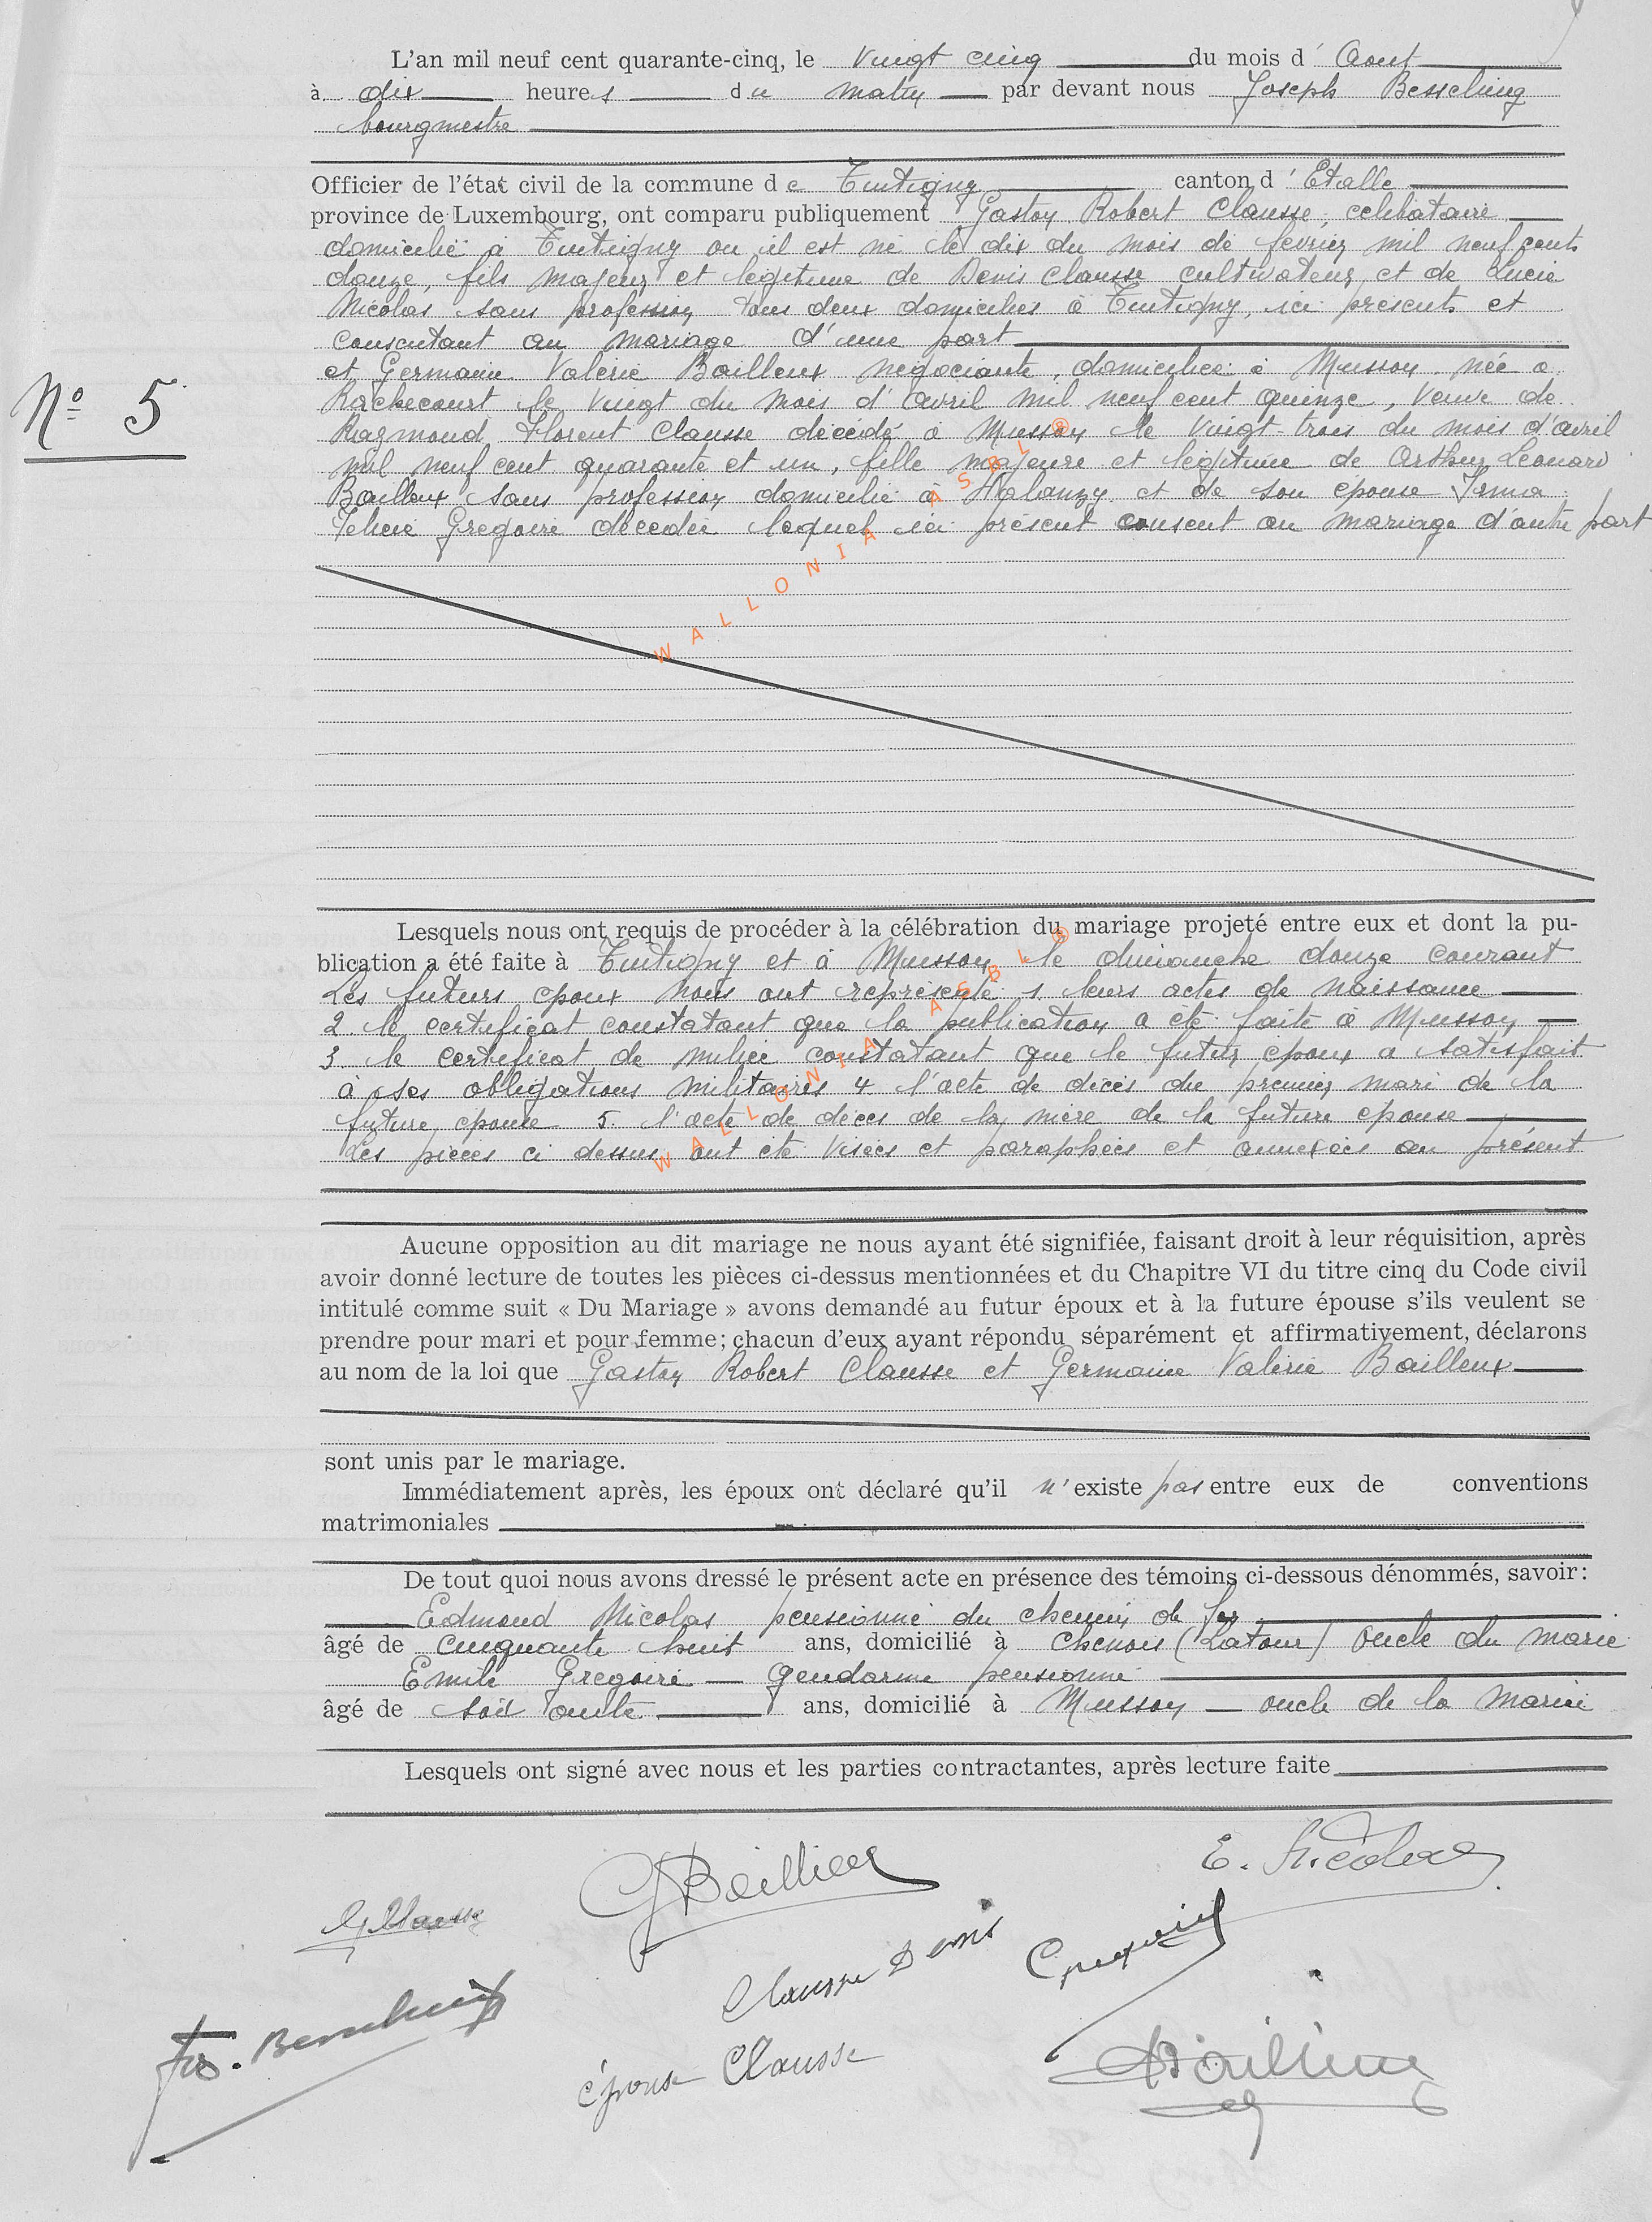 L'an mil neuf cent quarante-cinq, le vingt cinq du mois d' Aout
à dix heures du matin par devant nous Joseph Besseling
bourgmestre
Officier de l'état civil de la commune de Tintigny canton d' Etalle
province de Luxembourg, ont comparu publiquement Gaston Robert Clausse, celibataire
domicilié à Tintigny ou il est né le dix du mois de fevrier mil neuf cent
douze, fils majeur et legitime de Denis Clausse cultivateur et de Lucie
Nicolas sans profession tous deux domiciliés à Tintigny, ici présents et
consentant au mariage d'une part
et Germaine Valérie Bailleux négociante, domiciliée à Musson née a
Rachecourt le vingt du mois d'avril mil neuf cent quinze, veuve de
N° 5
Raymond Florent Clausse décédé à Musson le vingt-trois du mois d'avril
mil neuf cent quarante et un, fille majeure et légitime de Arthur Léonard
Bailleux sans profession domicilié à Halanzy et de son épouse Irma
Felicie Gregoire décédée lequel ici présent consent au mariage d'autre part
WALLONIA ASBL ®
Lesquels nous ont requis de procéder à la célébration du mariage projeté entre eux et dont la pu-
blication a été faite à Tintigny et à Musson le dimanche douze courant
Les futurs époux nous ont représenté 1. leurs actes de naissance
2. le certificat constatant que la publication a été faite à Musson
3. le certificat de milice constatant que le futur époux a satisfait
à ses obligations militaires 4. l'acte de décès du premier mari de la
future épouse 5. l'acte de décès de la mère de la future épouse
Les pièces ci dessus ont été visées et paraphées et annexées au présent
WALLONIA ASBL ®
Aucune opposition au dit mariage ne nous ayant été signifiée, faisant droit à leur réquisition, après
avoir donné lecture de toutes les pièces ci-dessus mentionnées et du Chapitre VI du titre cinq du Code civil
intitulé comme suit « Du Mariage » avons demandé au futur époux et à la future épouse s'ils veulent se
prendre pour mari et pour femme; chacun d'eux ayant répondu séparément et affirmativement, déclarons
au nom de la loi que Gaston Robert Clausse et Germaine Valérie Bailleux
sont unis par le mariage.
Immédiatement après, les époux ont déclaré qu'il n'existe pas entre eux de conventions
matrimoniales
De tout quoi nous avons dressé le présent acte en présence des témoins ci-dessous dénommés, savoir:
Edmond Nicolas pensionné du chemin de fer
âgé de cinquante huit ans, domicilié à Chenois (Latour) oncle du marié
Emile Gregoire gendarme pensionné
âgé de soixante ans, domicilié à Musson oncle de la mariée
Lesquels ont signé avec nous et les parties contractantes, après lecture faite
E. Nicolas
G Bailleux
G Clausse
Clausse Denis
Jos. Besseling
épouse Clausse
A Bailleux